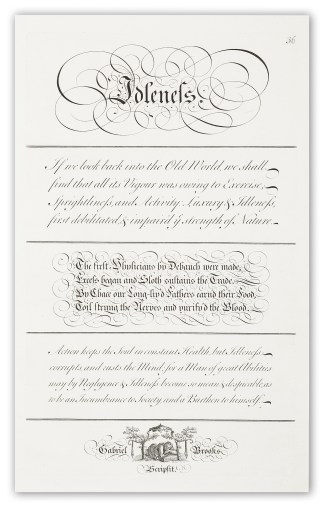 36
Idleneſs.
If we look back into the Old World, we shall
find that all its Vigour was owing to Exercise,
Sprightlineſs, and Activity. Luxury & Idleneſs,
first debilitated & impair'd ẏ strength of Nature.
The first Physicians by Debauch were made,
Exceſs began and Sloth sustains the Trade.
By Chace our Long-liv'd Fathers earn'd their Food,
Toil strung the Nerves and purify'd the Blood.
Action keeps the Soul in constant Health, but Idleneſs
corrupts, and rusts the Mind; for a Man of great Abilities
may by Negligence & Idleneſs become so mean & despicable, as
to be an Incumbrance to Society, and a Burthen to himself.
Gabriel Brooks
Scripsit.